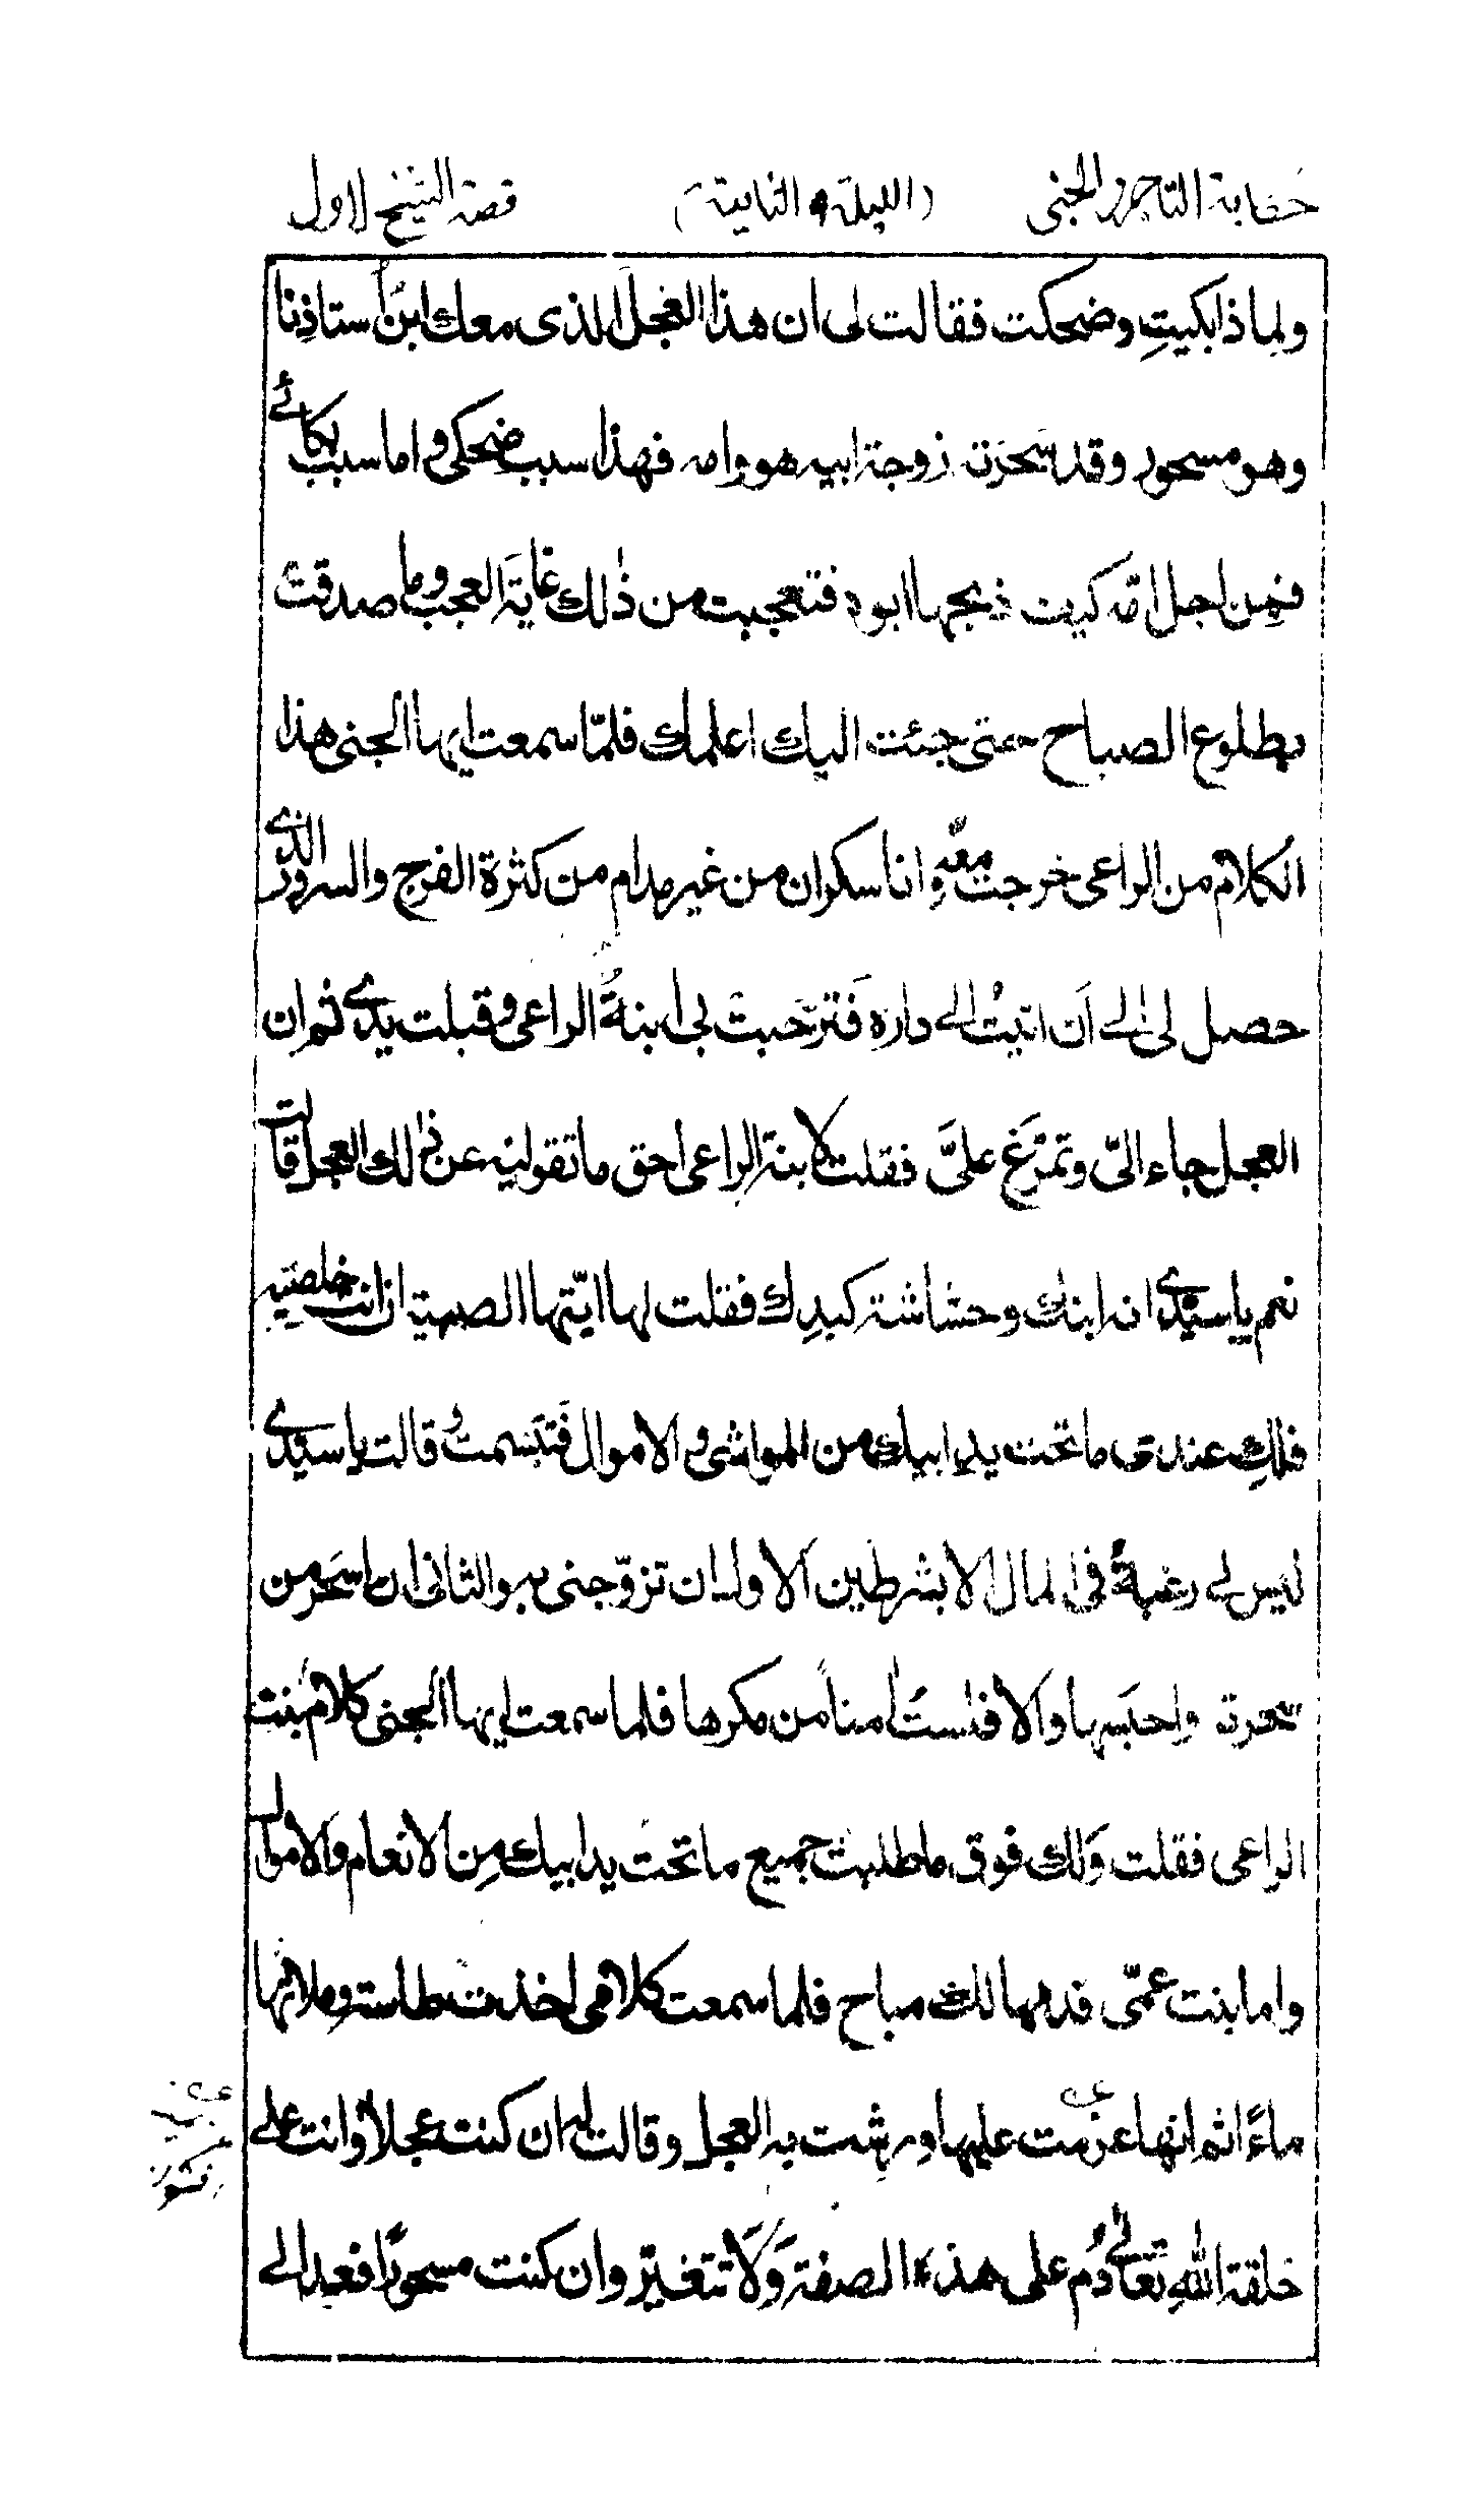 حكاية التاجر والجنى (الليلة الثانية) قصة الشيخ الاول
ولما ذا بكيتِ وضحكت فقالت لى ان هذا العجل الذى معك ابن أستاذِنا
وهو مسحور وقد سَحَرَته زوجة ابيه هو وامه فهذا سبب ضحكى و اما سبب بكائے
فمِن اجل امّه كيف ذبحها ابوه فتعجبت من ذٰلك غايَة العجب وما صدقت
بطلوع الصباح حتى جئت اليك اعلمك فلمّا سمعت ايها الجنى هذا
الكلام من الراعى خرجت معه وانا سكران من غير مدام من كثرة الفرح والسرور الذے
حصل لى الے اَن اتيتُ الے داره فَترَحّبت بى ابنةُ الراعى و قبلت يدے ثم ان
العجل جاء الىّ وتمَرّغ علىَّ فقلت لابنة الراعى احق ما تقولينه عن ذٰلك العجل قالت
نعم يا سيّدے انه ابنك وحشاشة كبدِك فقلت لها ايّتها الصبية ان انتِ خلصتيه
فلكِ عندى ما تحت يد ابيك من المواشى و الاموال فَتبَسمت و قالت يا سيّدے
ليس لے رغبةٌ فى المال الا بشرطين الاول ان تزوّجنى به والثانى ان اسحَر من
سحرته واحبَسها والا فلستُ اٰمناً من مكرها فلما سمعت ايها الجنى كلام بنت
الراعى فقلت وَلك فوق ما طلبت جميع ما تحت يد ابيك مِن الانعام والاموال
واما بنت عمّى فدمها لك مباح فلما سمعت كلامى اخذت طاسة وملاتها
ماءً ا ثم انها عزمت عليها ورشت به العجل وقالت له ان كنت عجلا وانت على
خلقة اللهِ تعالٰے دُم على هذه الصفة وَلَا تتغيّر وان كنت مسحورًا فعد الے